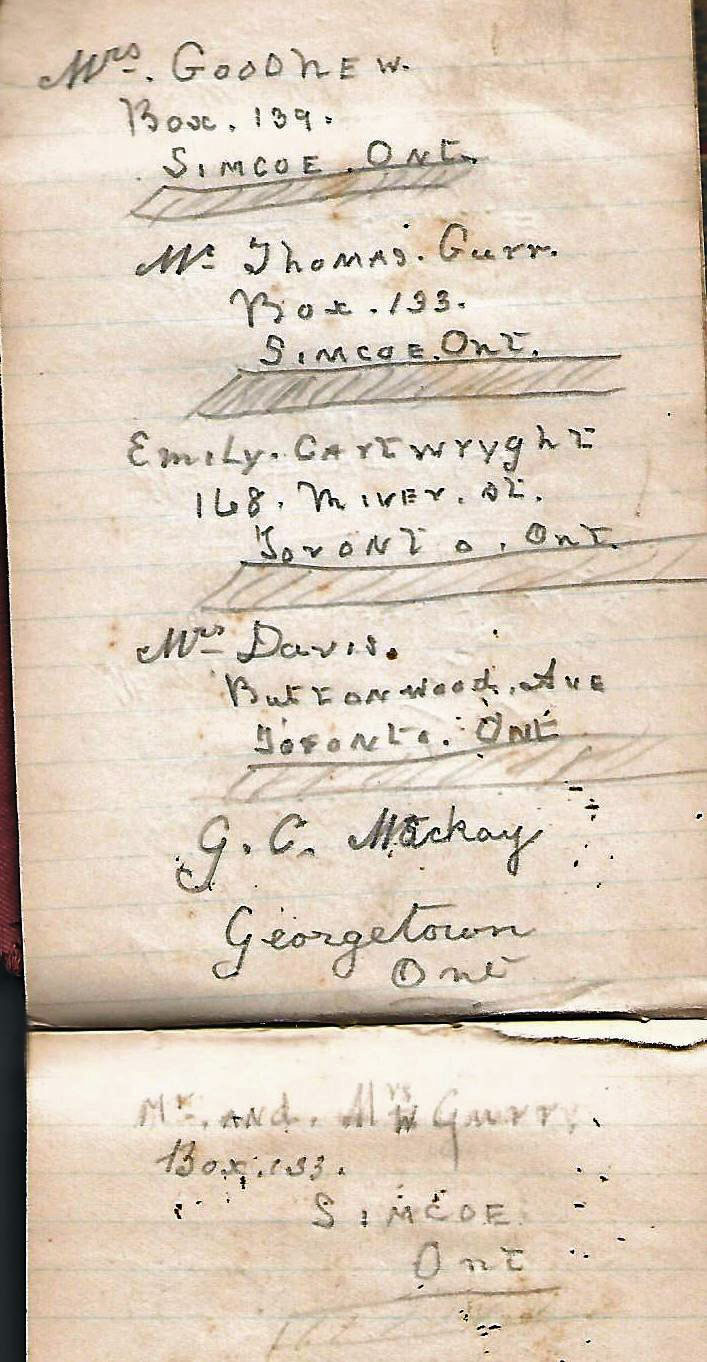 Mrs. GOODNEW.
Box. 139.
SIMCOE. ONt.
Mr Thomas. Gurr.
Box. 133.
SIMCOE. Ont.
Emily. Cartwryght
168. St.
Toronto. Ont.
Mrs Davis.
Buttonwood. Ave
Toronto. Ont
G. C. Mackay
Georgetown
Ont
Mr. and. Mrs W Gurr.
Box. 133.
SIMCOE
Ont